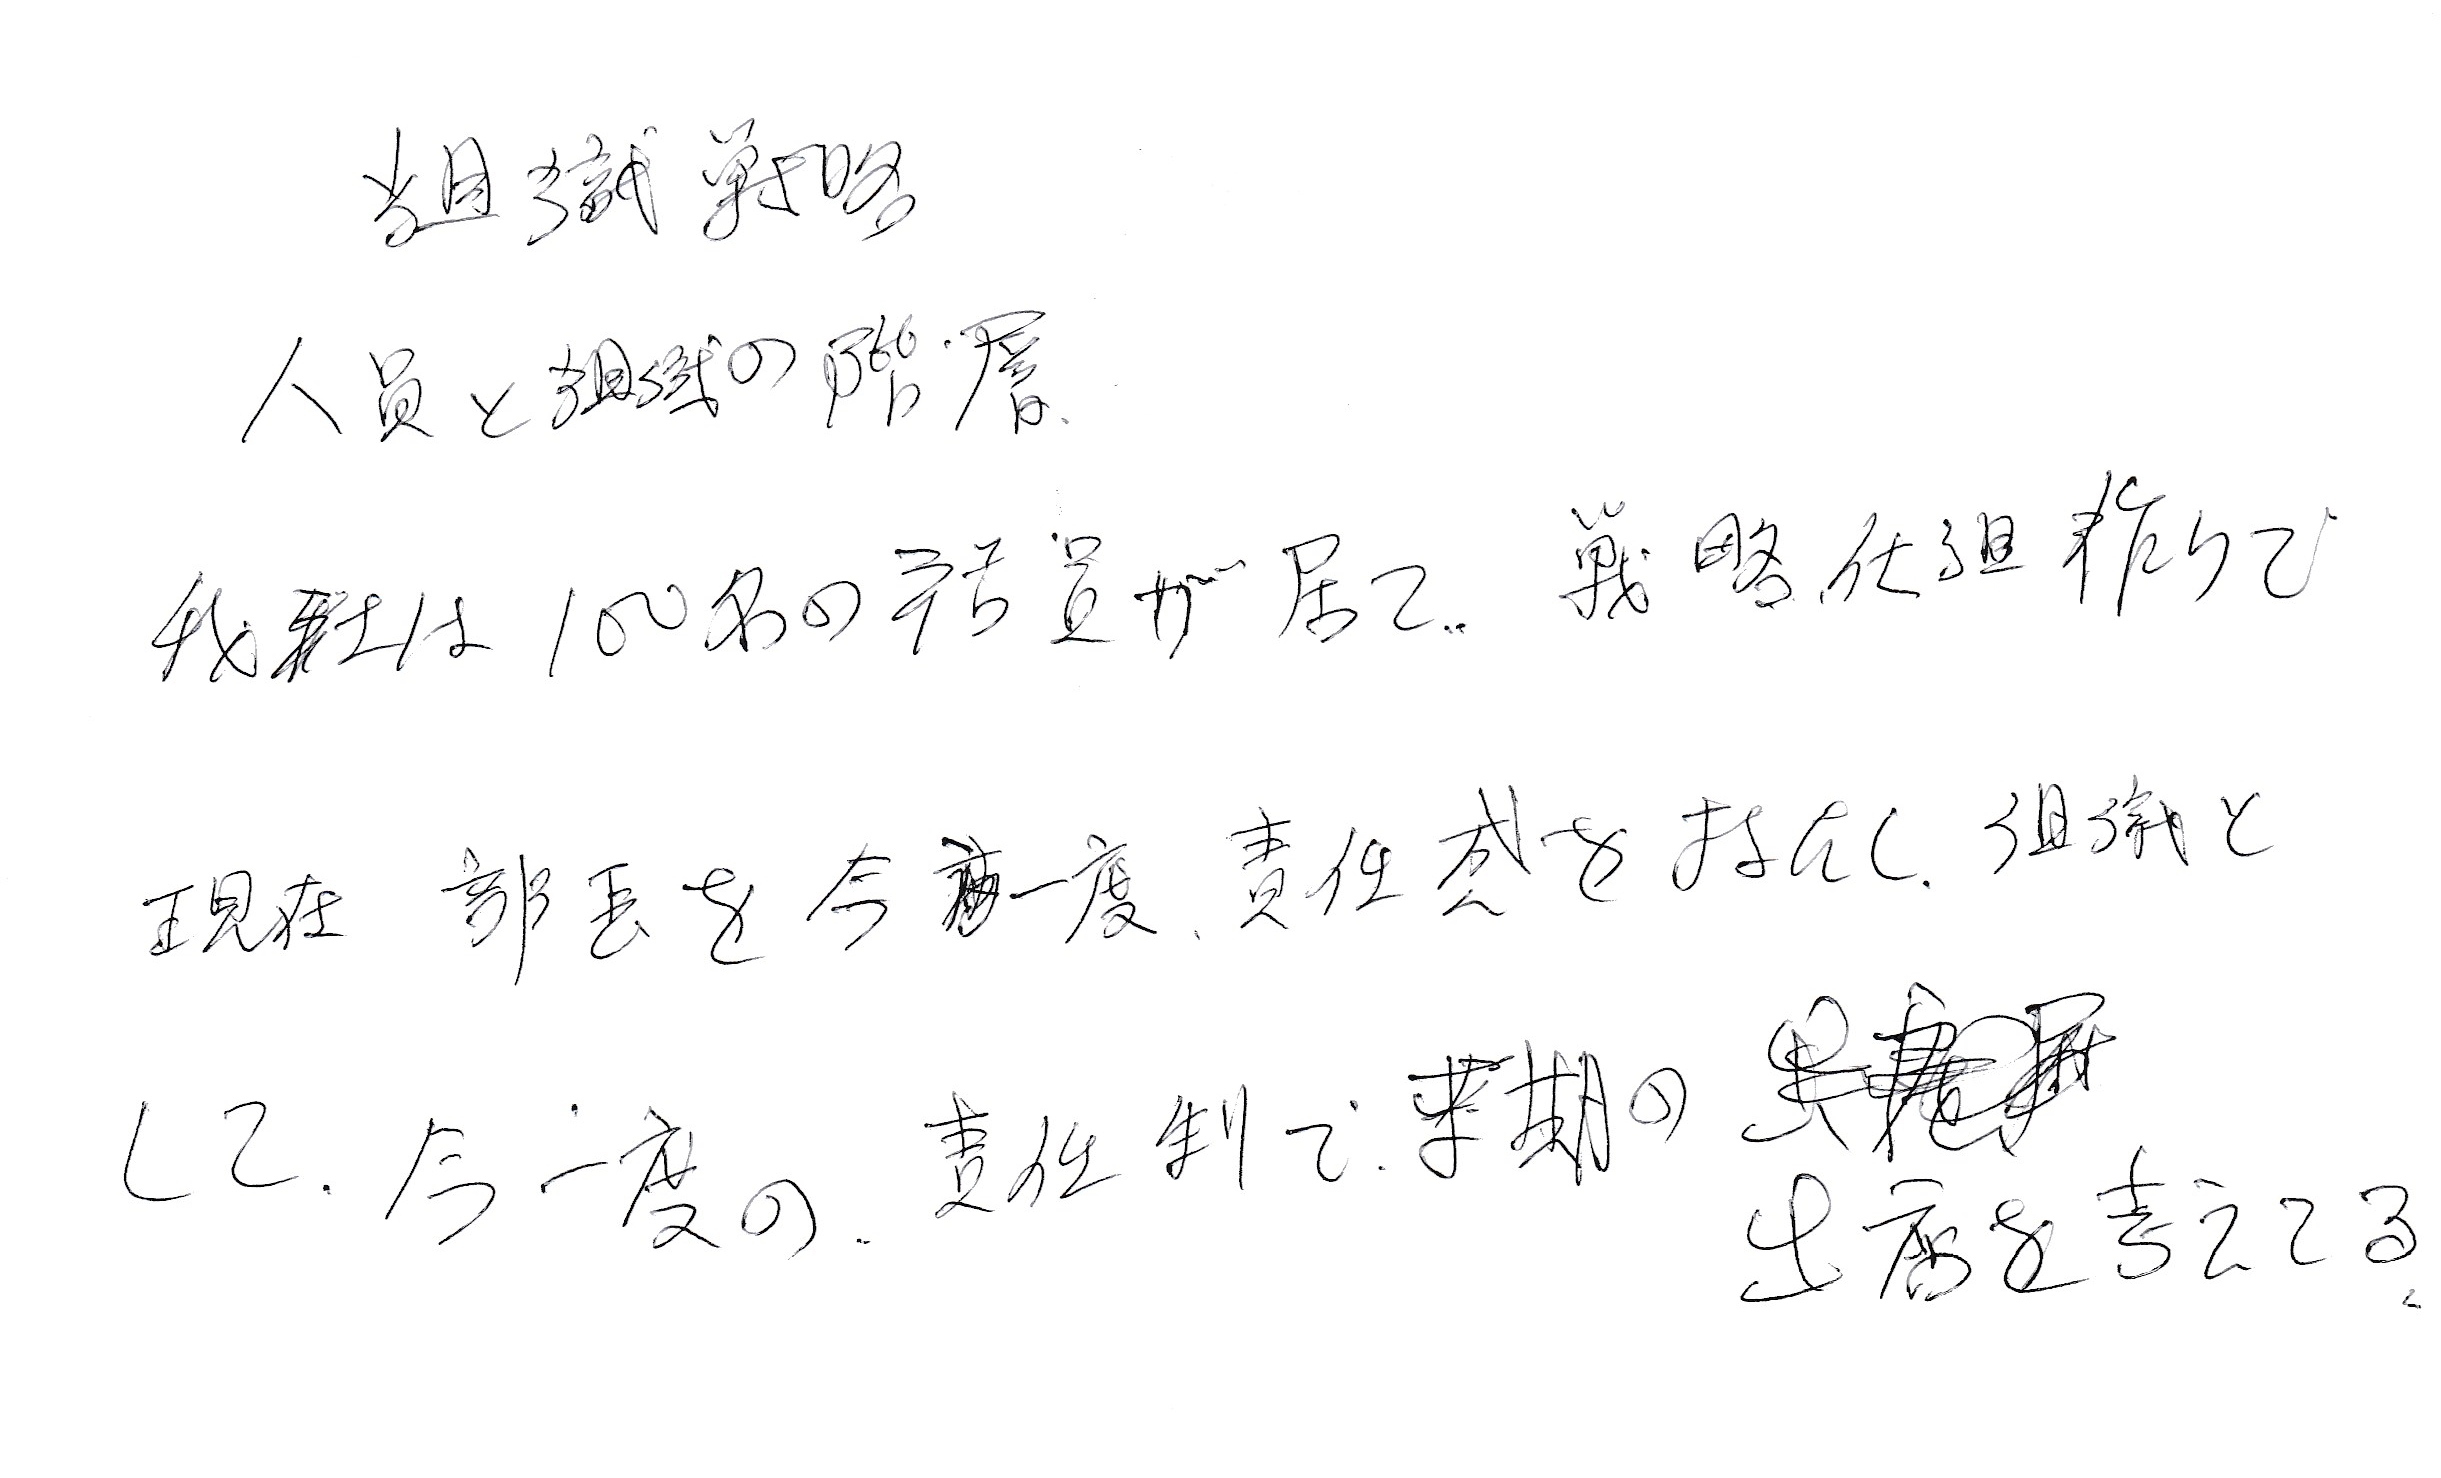 組織戦略
人員と組織の階層.
我社は100名の社員が居て、戦略仕組作りで
現在 部長を今一度、責任感をなくし、組織と
して、今一度の、責任制で、来期の
出店を考えてる。